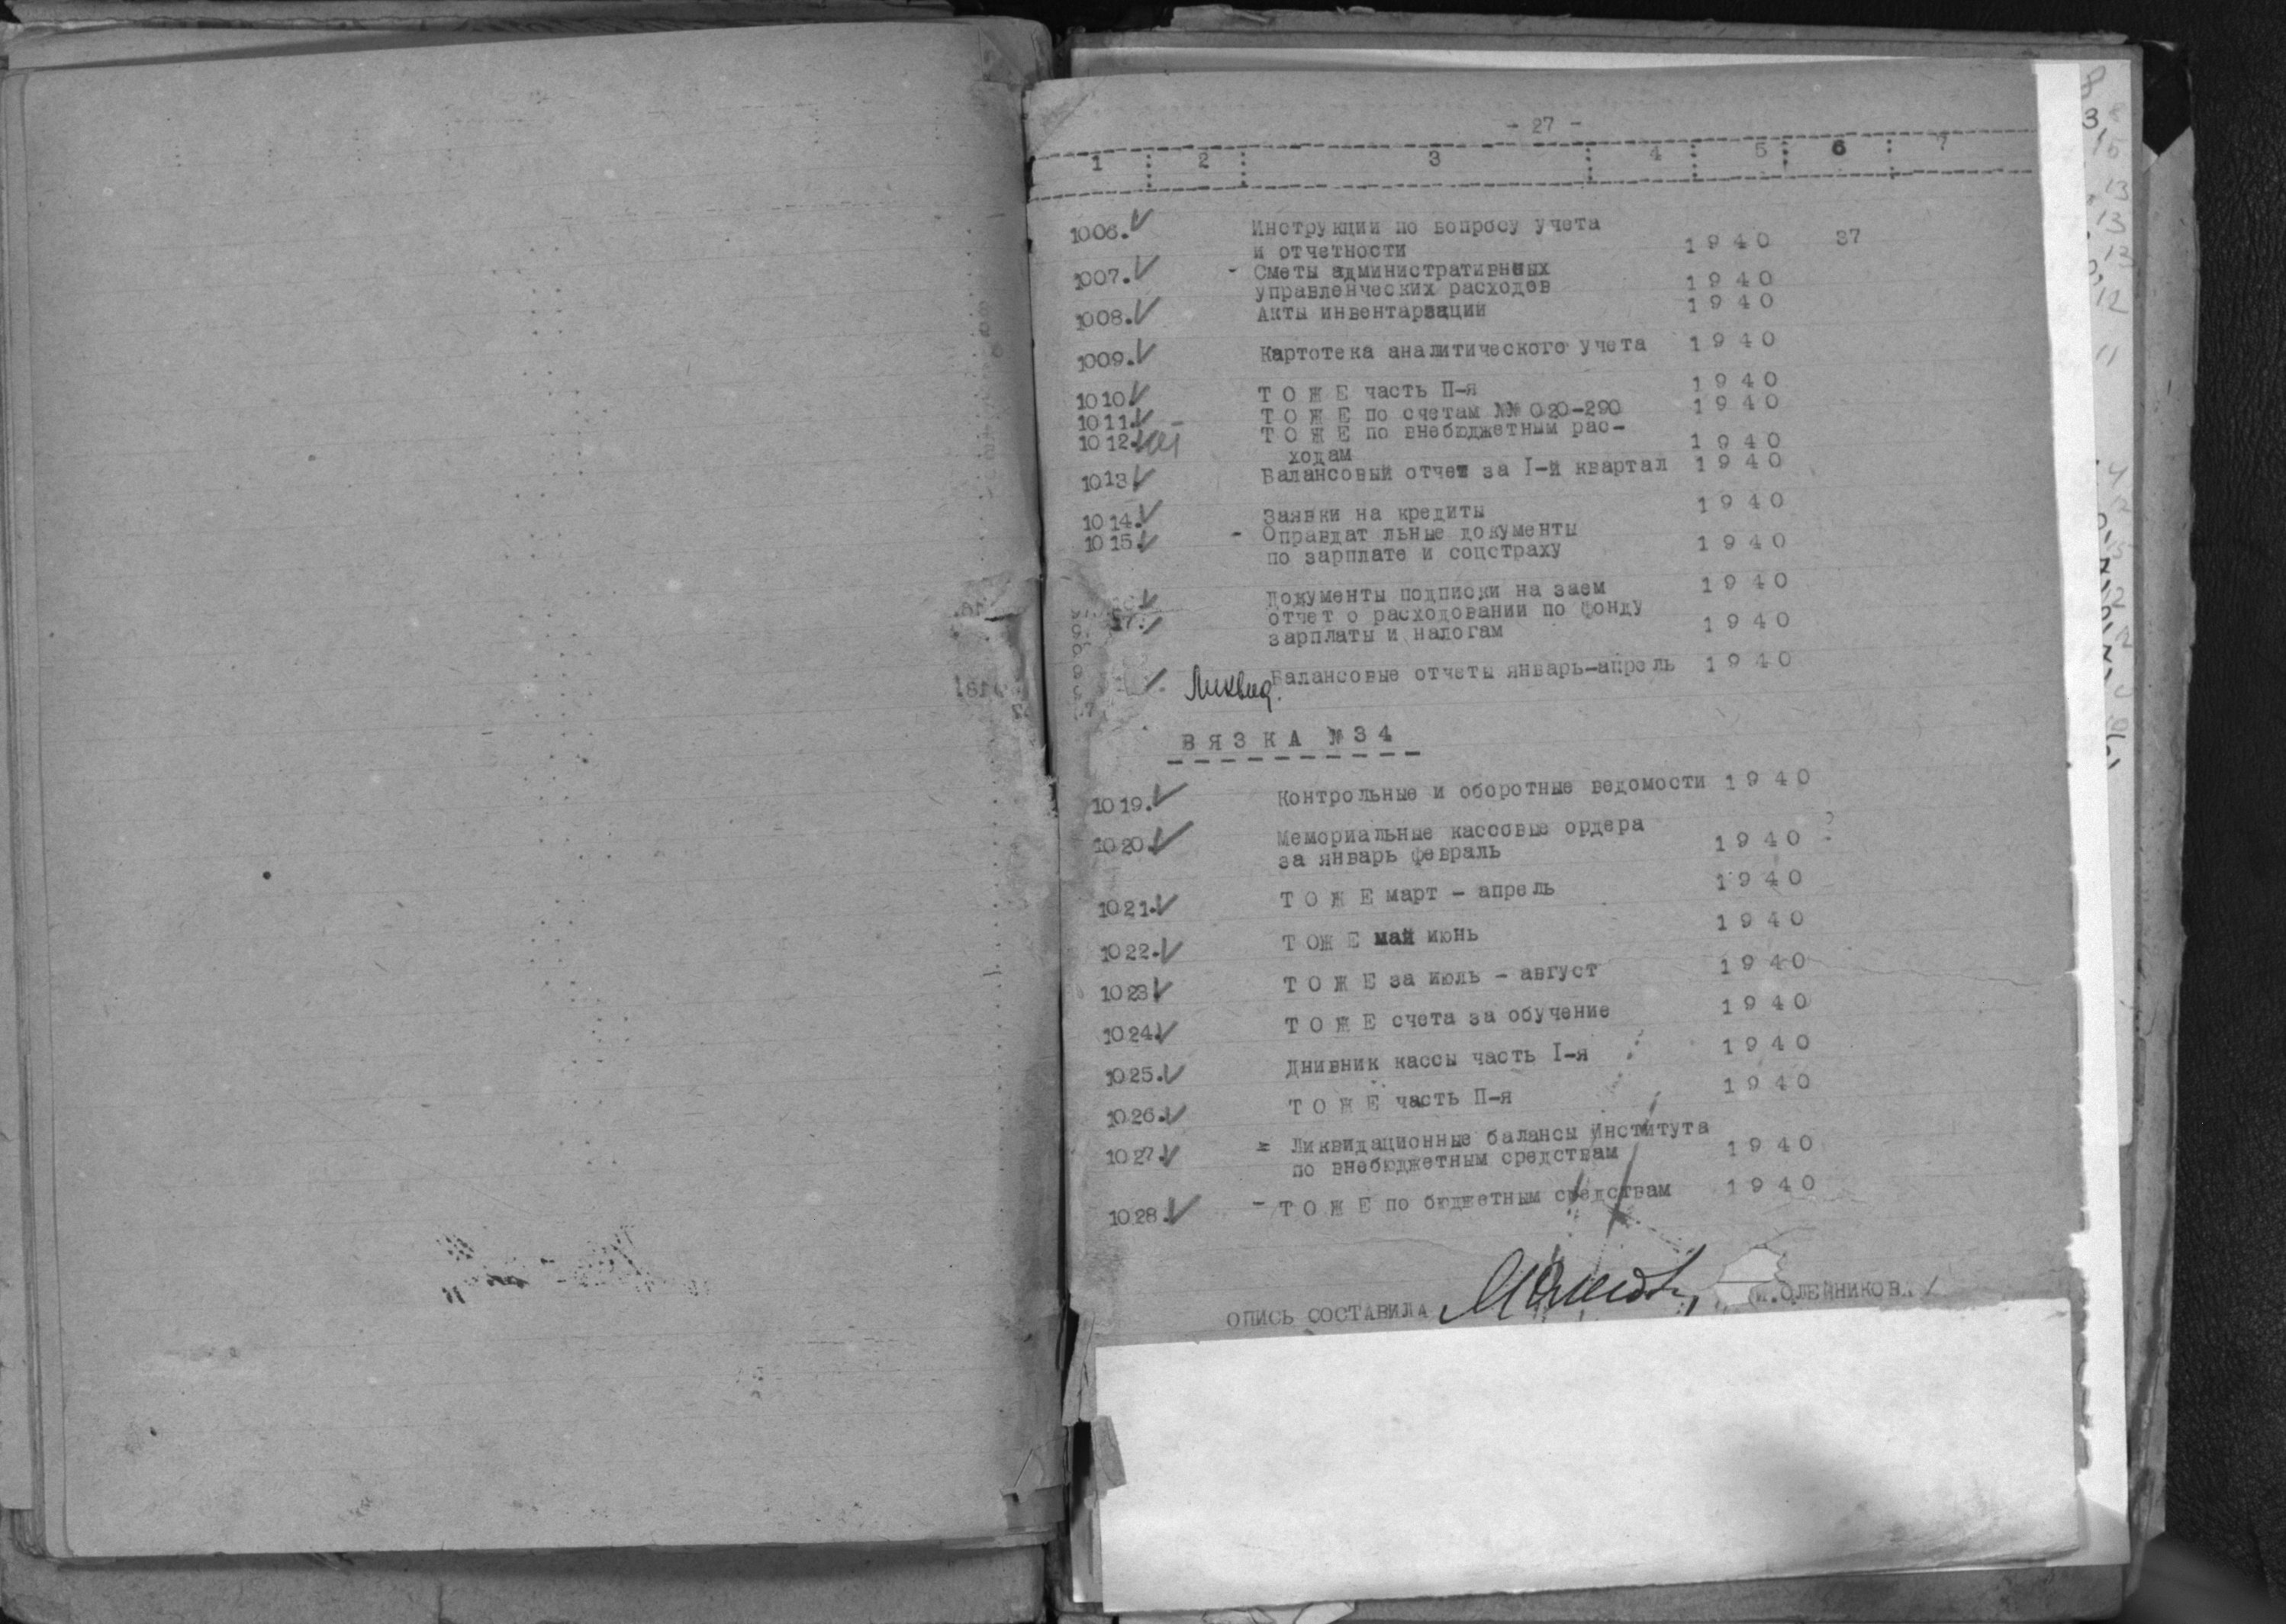 - 27 -
1 2 3 4 5 6 7
1006. Инструкции по вопросу учета
и отчетности 1940 37
1007. - Сметы административнных
управленческих расходов 1940
1008. Акты инвентарзации 1940
1009. Картотека аналитического учета 1940
1010. Т О Ж Е часть П-я 1940
1011. Т О Ж Е по счетам №№ 020-290 1940
1012. Т О Ж Е по внебюджетным рас-
ходам 1940
1013. Балансовый отчет за I-й квартал 1940
1014. Заявки на кредиты 1940
1015. - Оправдат льные документы
по зарплате и соцстраху 1940
Документы подписки на заем 1940
17. отчет о расходовании по фонду
зарплаты и налогам 1940
Ликвид. Балансовые отчеты январь-апрель 1940
В Я З К А №34
1019. Контрольные и оборотные ведомости 1940
1020. Мемориальные кассовые ордера
за январь февраль 1940
1021. Т О Ж Е март - апрель 1940
1022. Т ОЖ Е май июнь 1940
1023 Т О Ж Е за июль - август 1940
1024. Т О Ж Е счета за обучение 1940
1025. Днивник кассы часть I-я 1940
1026. Т О Ж Е часть П-я 1940
1027. = Ликвидационные балансы Института
по внебюджетным средствам 1940
1028. - Т О Ж Е по бюджетным средствам 1940
ОПИСЬ СОСТАВИЛА И.ОЛЕЙНИКОВ. /